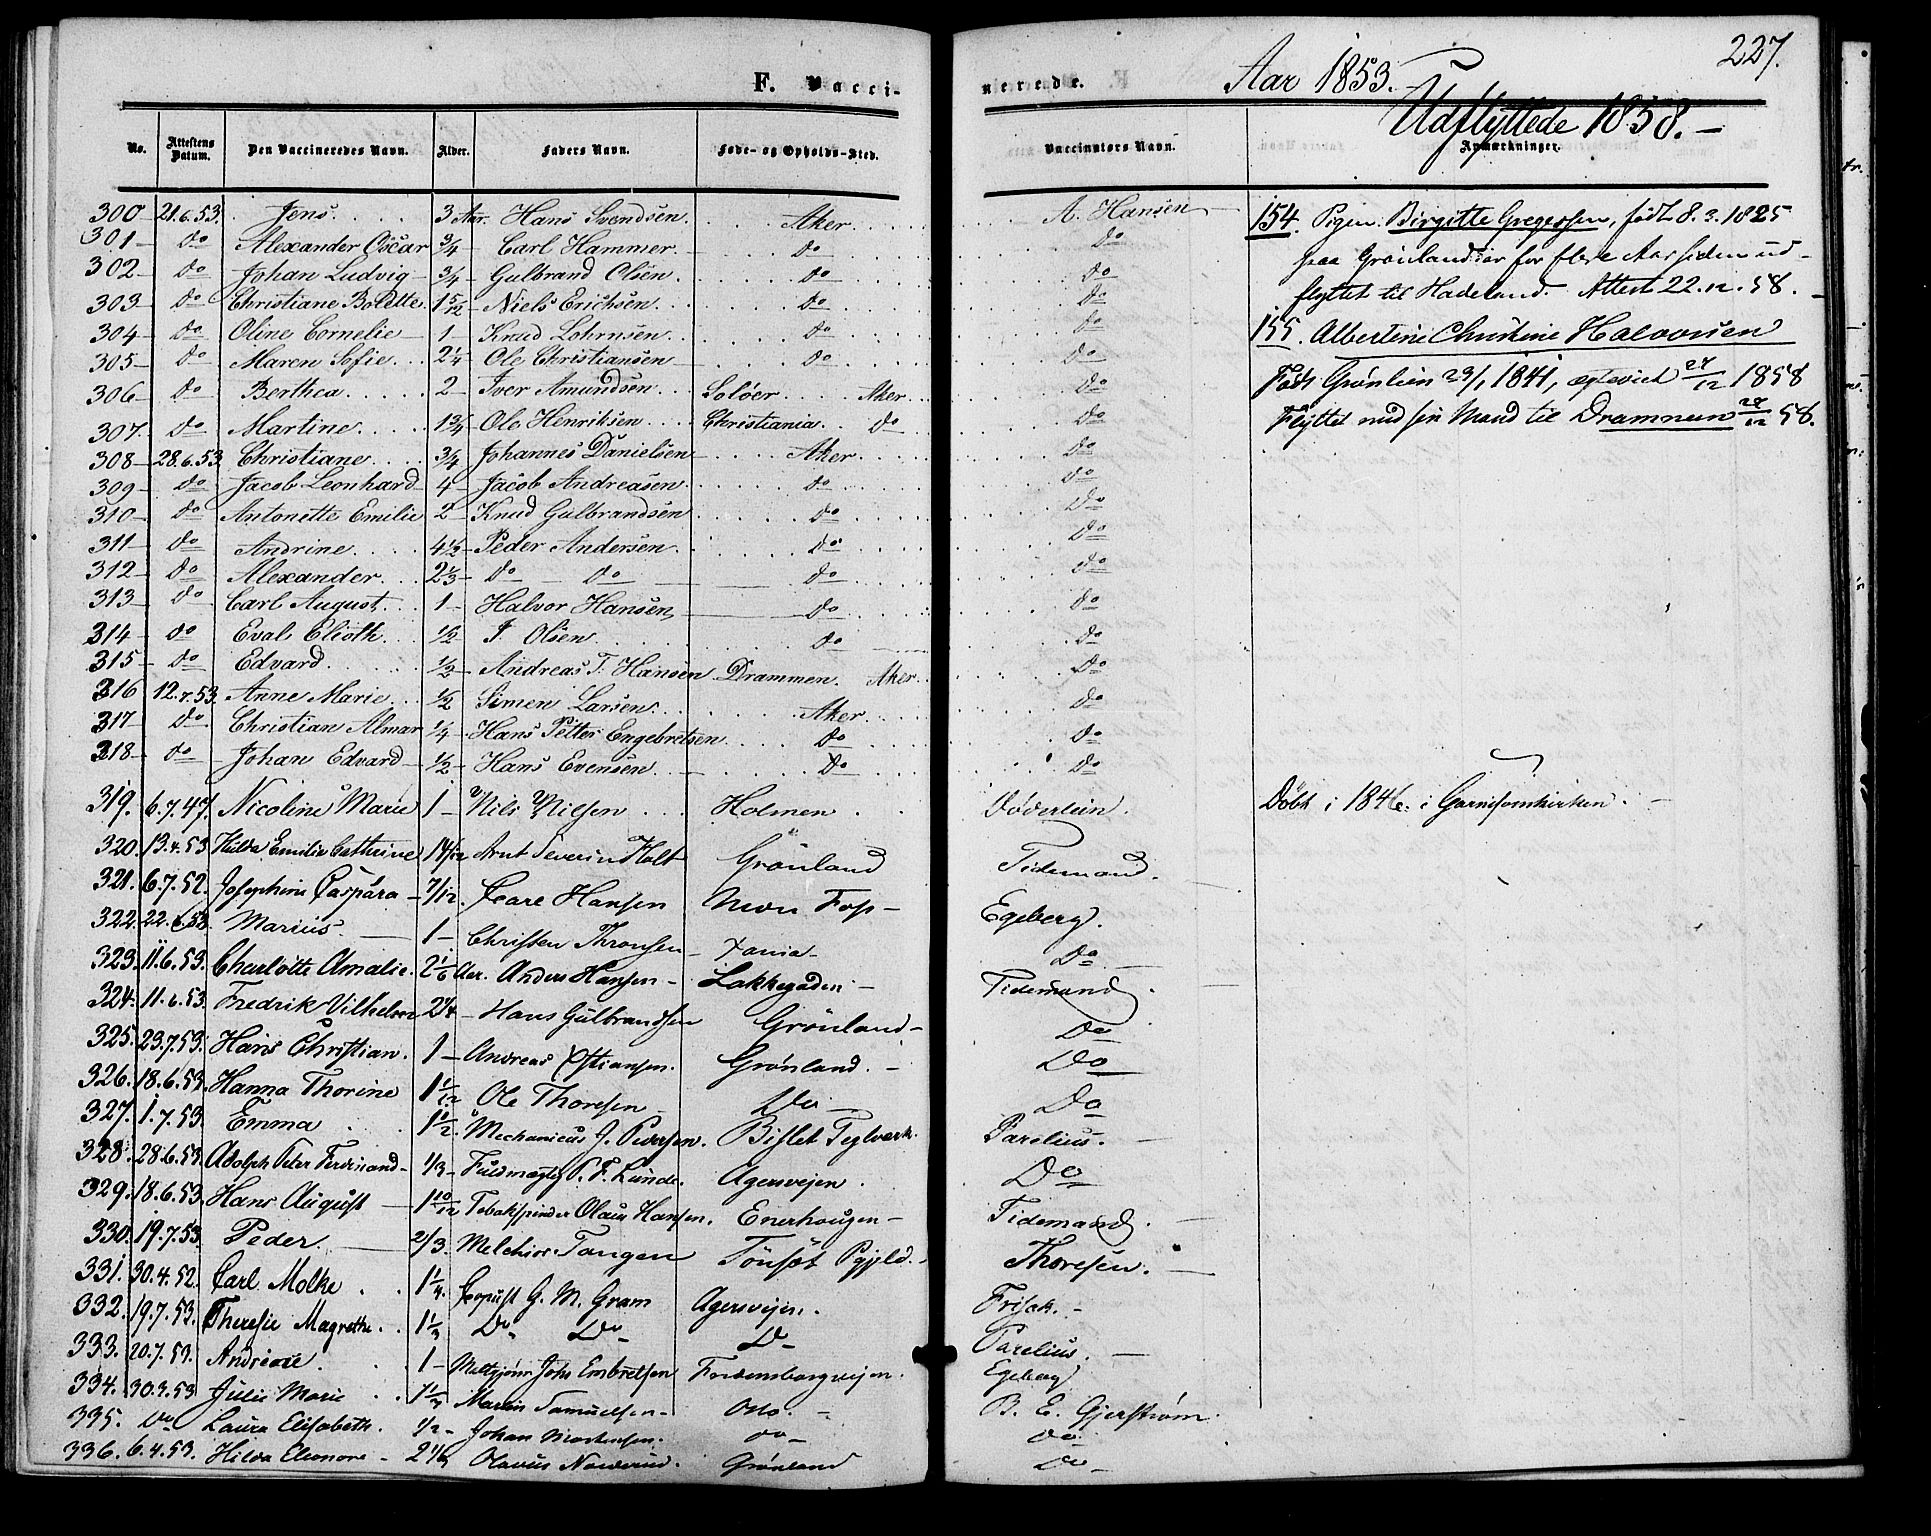 227.
F. Vacci-
nerede. Aar 1853.
Udflyttede 1858. —
No. Attestens Datum. Den Vaccineredes Navn. Alder. Faders Navn. Føde- og Opholds-Sted. Vaccinators Navn. Anmærkninger.
300 – 21.6.53. Jens 3 Aar. Hans Svendsen. Aker A. Hansen
301 – do Alexander Oscar 3/4 – Carl Hammer. do do
302 – do Johan Ludvig 3/4 – Gulbrand Olsen do do
303 – do Christiane Boldtte 1 5/12 – Niels Erichsen. do do
304 – do Oline Cornelie 1 – Knud Lohrnsen do do
305 – do Maren Sofie 2 1/4 – Ole Christiansen do do
306 – do Berthea 2 – Iver Amundsen Soløer Aker do
307 – do Martine 1 3/4 – Ole Henriksen Christiania do do
308 – 28.6.53. Christiane 3/4 – Johannes Danielsen Aker do
309 – do Jacob Leonhard 4 – Jacob Andreasen do do
310 – do Antonette Emilie 2 – Knud Gulbrandsen do do
311 – do Andrine 4 1/2 – Peder Andersen do do
312 – do Alexander 2 1/3 – do do do do
313 – do Carl August 1 – Halvor Hansen do do
314 – do Eval Elioth 1/2 – I. Olsen do do
315 – do Edvard 1/2 – Andreas T. Hansen Drammen. Aker do
316 12.7.53. Anne Marie 1/2 Simen Larsen Aker do
317 do Christian Almar 1/4 – Hans Petter Engebretsen do do
318 – do Johan Edvard 1/2 – Hans Evensen do do
319. 6.7.47. Nicoline Marie 1 – Nils Nilsen Holmen Døderlein.
320. 13.4.53 Hilda Emilie Cathrine 14/12 Arnt Severin Holt Grønland Tidemand.
321. 6.7.52. Josephine Caspara – 7/12. Hansen Egeberg.
322. 22.6.53 Marius. 1 – Christen Thronsen Xania – Do
323. 11.6.53. Charlotte Amalie. 2 1/6 Aar. Anders Hansen – Lakkegaden – Tidemand.
324. 11.6.53. Fredrik Vilhelm 2 1/4 – Hans Gulbrandsen Grønland – Do
325. 23.7.53. Hans Christian. 1 – Andreas Xstiansen. Grønland. – Do
326. 18.6.53. Hanna Thorine 1 1/12 Ole Thoresen Do – Do
327. 1.7.53. Emma 1 10/12. Mechanicus J. Pedersen. Bislet Teglværk. Parelius.
328. 28.6.53. Adolph Peter Ferdinand – 1/3 – Fuldmægtig P. F. Lunde. Agersvejen. Do
329. 18.6.53. Hans August 1 10/12 Tobakspinder Olaus Hansen. Enerhougen – Tidemand.
330. 19.7.53. Peder. 2/3. Melchior Tangen Tönset Thoresen.
331. 30.4.52. Carl Molke 1 1/4. G. M. Gram Agersvejen. Frisak. –
332. 19.7.53. Theresie Magrethe 1 1/3 Do Do Do – Parelius.
333. 20.7.53. Andreae 1 – Johs Embretsen Egeberg
334. 30.3.53 Julie Marie Martin Samuelsen – Oslo. – B. E. Gjerstrøm.
335. Do Laura Elisabeth. 1/2 – Johan Mortensen. do – do
336. 6.4.53. Hilda Eleonore – 2 1/6 Olavus Grønland do –
154. Pigen Birgitte Gregersen, født 8.3.1825
paa Grønland er for flere Aar siden ud-
flyttet til Hadeland. Attest 22.12.58. –
155. Albertine Christine Halvorsen
Født Grønlien 29/1 1841, ægteviet 27/12 1858
Flyttet med sin Mand til Drammen 28/12 58.
Døbt i 1846. i Garnisonskirken. –